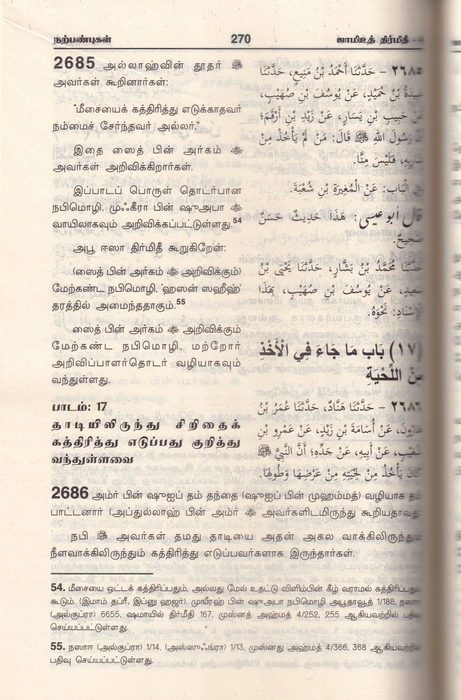 நற்பண்புகள் 270 ஜாமிஉத் திர்மிதீ
2685 அல்லாஹ்வின் தூதர் ﷺ
அவர்கள் கூறினார்கள்:
"மீசையைக் கத்திரித்து எடுக்காதவர்
நம்மைச் சேர்ந்தவர் அல்லர்."
இதை ஸைத் பின் அர்கம்
அவர்கள் அறிவிக்கிறார்கள்.
இப்பாடப் பொருள் தொடர்பான
நபிமொழி, முஃகீரா பின் ஷுஅபா
வாயிலாகவும் அறிவிக்கப்பட்டுள்ளது.54
அபூ ஈஸா திர்மிதீ கூறுகிறேன்:
(ஸைத் பின் அர்கம் அறிவிக்கும்)
மேற்கண்ட நபிமொழி, 'ஹஸன் ஸஹீஹ்'
தரத்தில் அமைந்ததாகும்.55
ஸைத் பின் அர்கம் அறிவிக்கும்
மேற்கண்ட நபிமொழி, மற்றோர்
அறிவிப்பாளர்தொடர் வழியாகவும்
வந்துள்ளது.
பாடம்: 17
தாடியிலிருந்து சிறிதைக்
கத்திரித்து எடுப்பது குறித்து
வந்துள்ளவை
٢٦٨٥ – حَدَّثَنَا أَحْمَدُ بْنُ مَنِيعٍ، حَدَّثَنَا
بْنُ حُمَيْدٍ، عَنْ يُوسُفَ بْنِ صُهَيْبٍ،
حَبِيبِ بْنِ يَسَارٍ، عَنْ زَيْدِ بْنِ أَرْقَمَ؛
رَسُولَ اللهِ ﷺ قَالَ: مَنْ لَمْ يَأْخُذْ مِنْ
فَلَيْسَ مِنَّا.
الْبَاب: عَنْ الْمُغِيرَةِ بْنِ شُعْبَةَ.
قَالَ أَبُو عِيسَى: هَذَا حَدِيثٌ حَسَنٌ
صَحِيحٌ.
حَدَّثَنَا مُحَمَّدُ بْنُ بَشَّارٍ، حَدَّثَنَا يَحْيَى بْنُ
سَعِيدٍ، عَنْ يُوسُفَ بْنِ صُهَيْبٍ، بِهَذَا
نَحْوَهُ.
(١٧) بَاب مَا جَاءَ فِي الْأَخْذِ
مِنَ اللِّحْيَةِ
٢٦٨٦ – حَدَّثَنَا هَنَّادٌ، حَدَّثَنَا عُمَرُ بْنُ
هَارُونَ، عَنْ أُسَامَةَ بْنِ زَيْدٍ، عَنْ عَمْرِو بْنِ
عَنْ أَبِيهِ، عَنْ جَدِّهِ؛ أَنَّ النَّبِيَّ ﷺ
كَانَ يَأْخُذُ مِنْ لِحْيَتِهِ مِنْ عَرْضِهَا وَطُولِهَا.
2686 அம்ர் பின் ஷுஐப் தம் தந்தை (ஷுஐப் பின் முஹம்மத்) வழியாக தம்
பாட்டனார் (அப்துல்லாஹ் பின் அம்ர் அவர்களிடமிருந்து கூறியதாவது
நபி ﷺ அவர்கள் தமது தாடியை அதன் அகல வாக்கிலிருந்து
நீளவாக்கிலிருந்தும் கத்திரித்து எடுப்பவர்களாக இருந்தார்கள்.
54. மீசையை ஒட்டக் கத்திரிப்பதும், அல்லது மேல் உதட்டு விளிம்பின் கீழ் வராமல் கத்திரிப்பது
கூடும். (இமாம் தபரீ, இப்னு ஹஜர்). முஃகீரஹ் பின் ஷுஅபா நபிமொழி அபூதாவூத் 1/188,
(அல்குப்ரா) 6655, ஷமாயில் திர்மிதீ 167, முஸ்னத் அஹ்மத் 4/252, 255 ஆகியவற்றில்
செய்யப்பட்டுள்ளது.
55. நஸாஈ (அல்குப்ரா) 1/14, (அஸ்ஸுஃக்ரா) 1/13, முஸ்னது அஹ்மத் 4/366, 368 ஆகியவற்றில்
பதிவு செய்யப்பட்டுள்ளது.